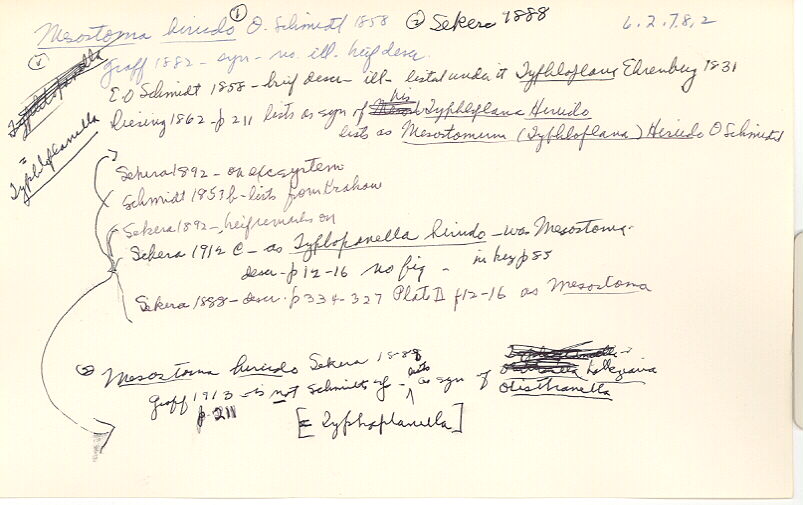 Mesostoma hirudo ① O. Schmidt 1858 ② Sekera 1888
6.2.7.8.2
① Graff 1882 - syn - no. ill. brief descr.
E.O Schmidt 1858 - brief descr - ill - listed under it Typhloplana Ehrenberg 1831
Typhloplanella
=
Typhloplanella
Diesing 1862 - p 211 lists as syn of his Typhloplana Hirudo
lists as Mesostomum (Typhloplana) Hirudo O Schmidt
Sekera 1892 - on exc system
Schmidt 1853 b - lists from Krakow
Sekera 1892 - brief remarks on
Sekera 1912 C - as Typlopanella hirudo - was Mesostoma.
descr - p 12-16 no fig - in key p 85
Sekera 1888 - descr. p 334-327 Plate II f 12-16 as Mesostoma
② Mesostoma hirudo Sekera 1888
Graff 1913 - is not Schmidts sp - puts as syn of halleziana
p. 211
Olisthanella
[= Typhoplanella]